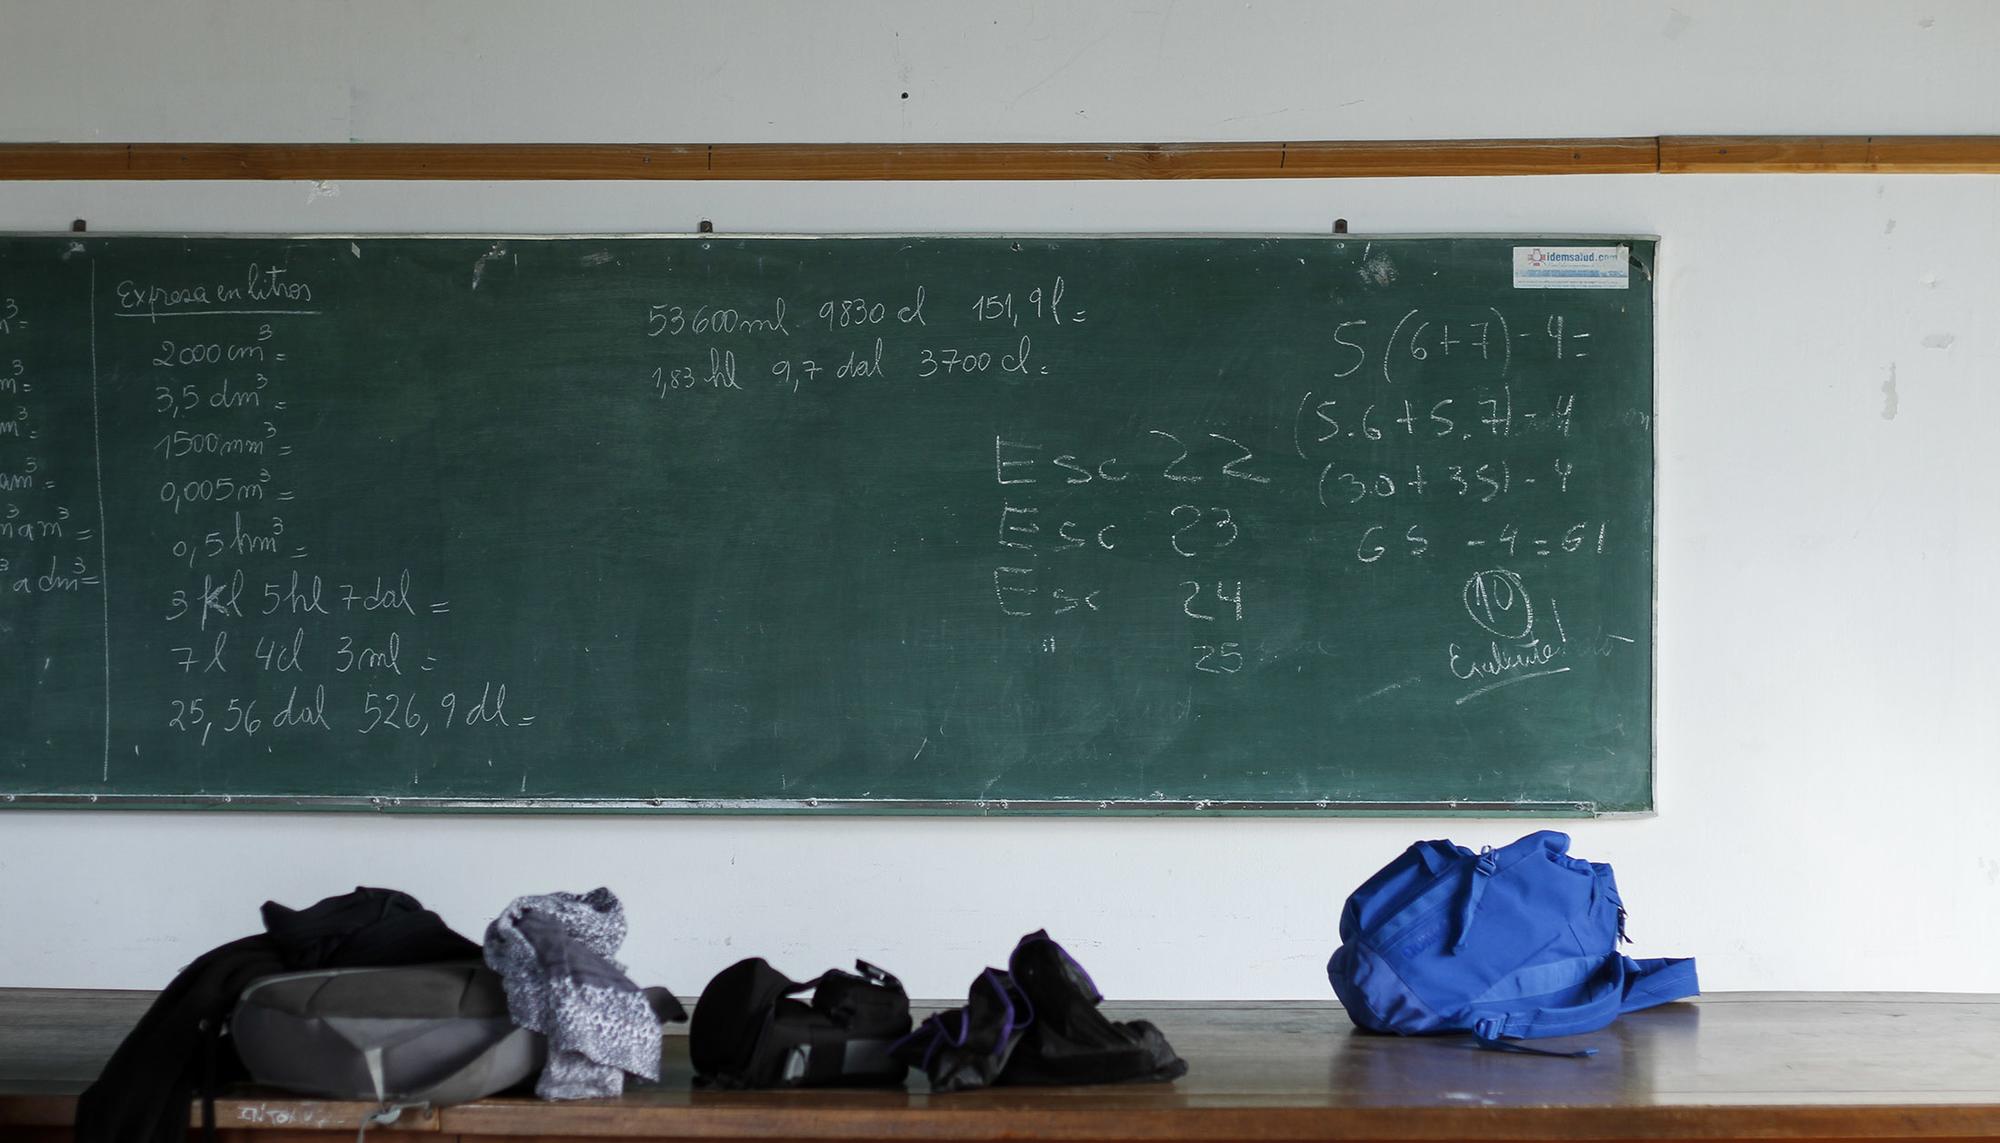 m³=
m³=
m³=
am³=
m a m³=
³ a dm³=
Expresa en litros
2000 cm³=
3,5 dm³=
1500 mm³=
0,005 m³=
0,5 hm³=
3 kl 5 hl 7 dal =
7 l 4 cl 3 ml =
25,56 dal 526,9 dl =
53600 ml 9830 cl 151,9 l =
1,83 hl 9,7 dal 3700 cl =
Esc 22
Esc 23
Esc 24
" 25
idemsalud.com
5(6+7)-4=
(5.6+5.7)-4
(30+35)-4
65 -4=61
10